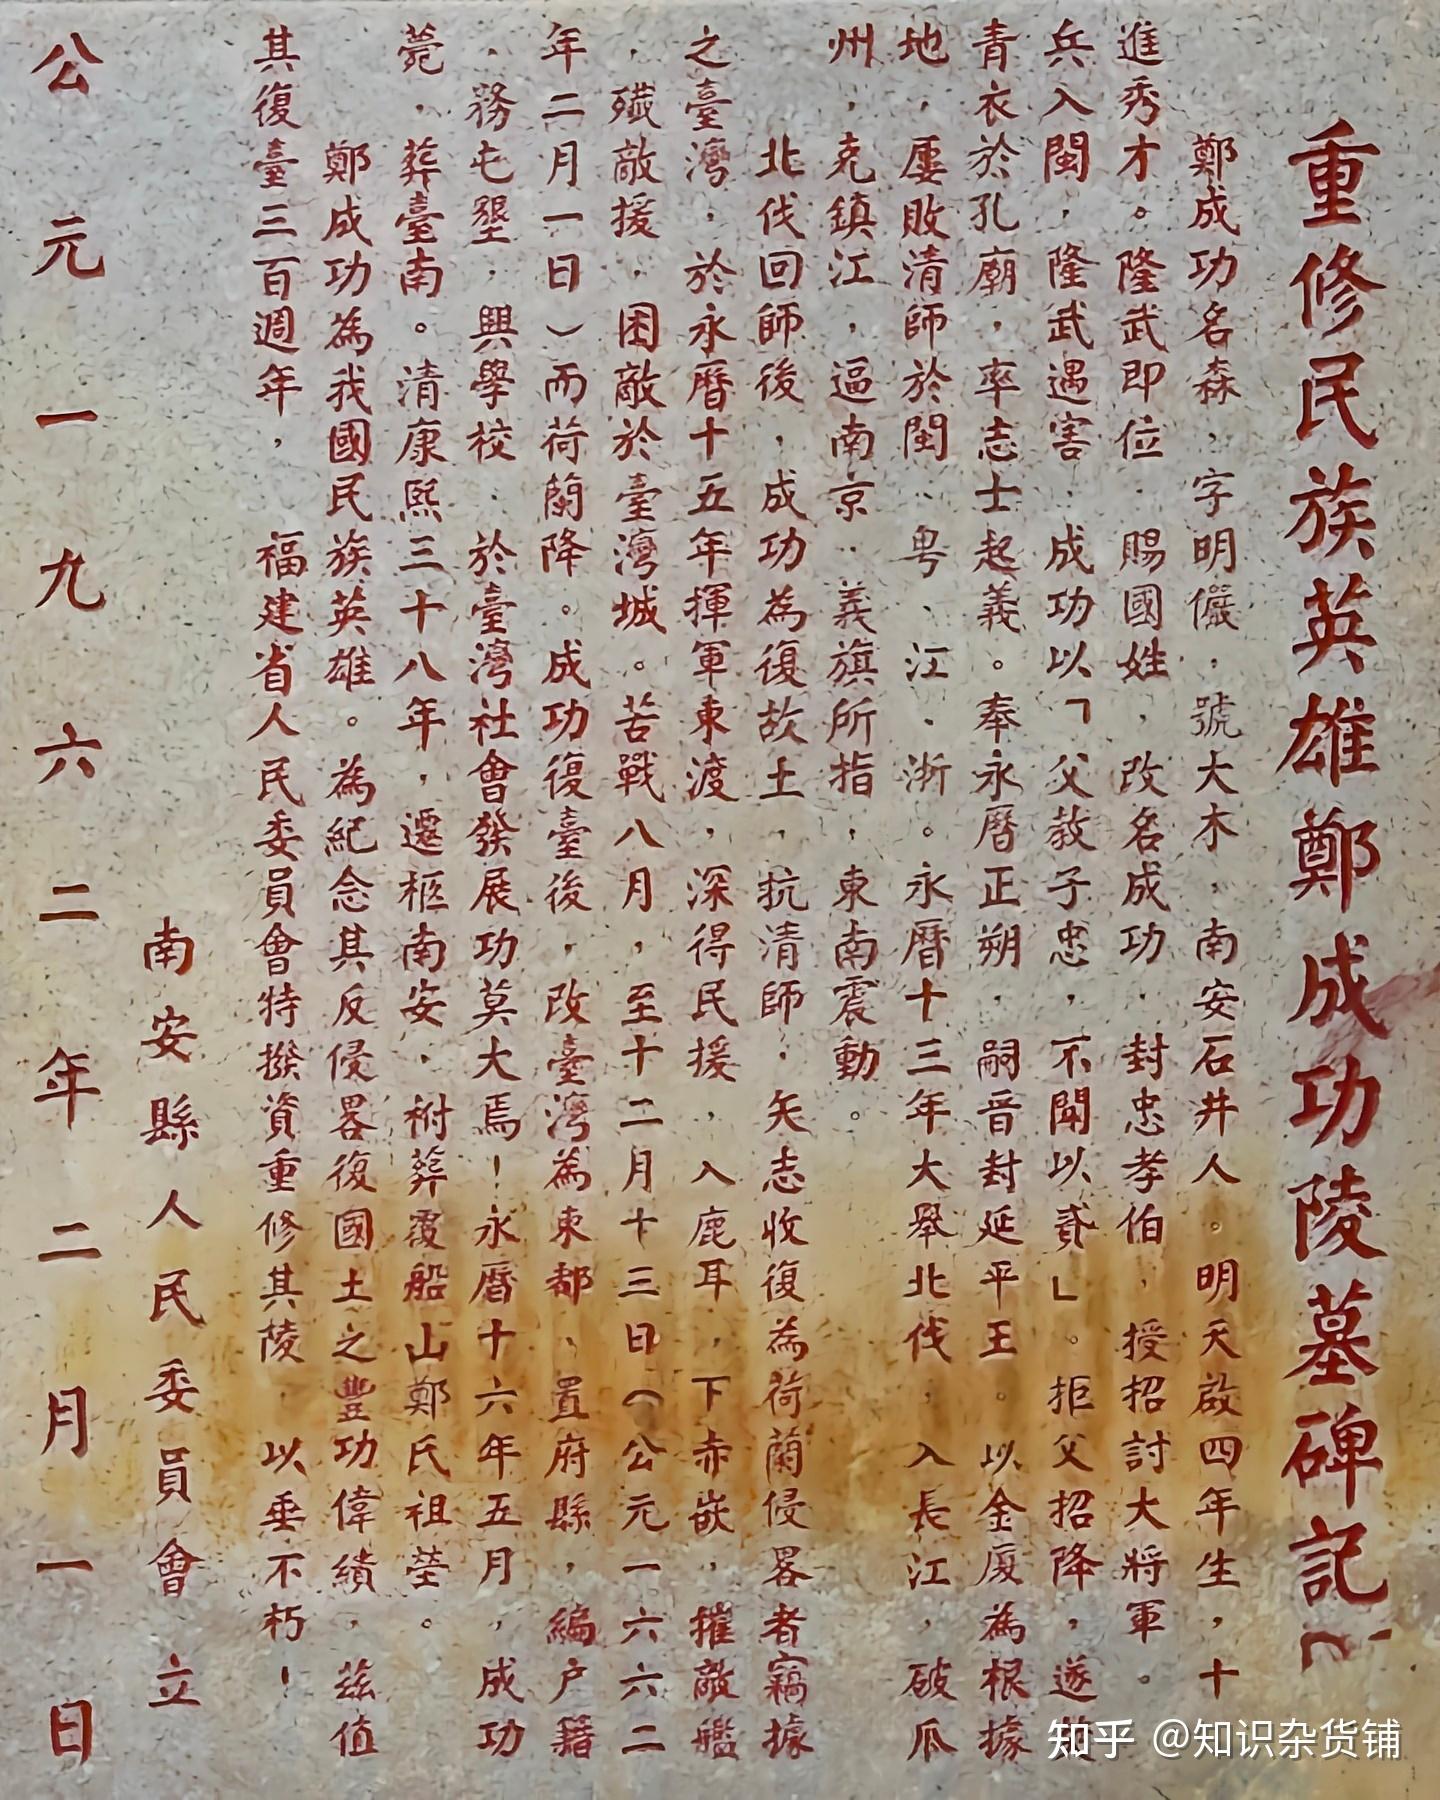 重修民族英雄鄭成功陵墓碑記
鄭成功名森，字明儼，號大木，南安石井人。明天啟四年生，十
進秀才。隆武即位，賜國姓，改名成功，封忠孝伯，授招討大將軍。
兵入閩，隆武遇害，成功以「父教子忠，不聞以貳」。拒父招降，遂
青衣於孔廟，率志士起義。奉永曆正朔，嗣晉封延平王。以金廈為根據
地，屢敗清師於閩、粤、江、浙。永曆十三年大舉北伐，入長江，破瓜
州，克鎮江，逼南京；義旗所指，東南震動。
北伐回師後，成功為復故土，抗清師，矢志收復為荷蘭侵畧者竊據
之臺灣，於永曆十五年揮軍東渡，深得民援，入鹿耳，下赤嵌，摧敵艦
，殲敵援，困敵於臺灣城。苦戰八月，至十二月十三日（公元一六六二
年二月一日）而荷蘭降。成功復臺後，改臺灣為東都、置府縣，編户籍
，務屯墾，興學校，於臺灣社會發展功莫大焉！永曆十六年五月，成功
薨，葬臺南。清康熙三十八年，遷柩南安，祔葬覆船山鄭氏祖塋。
鄭成功為我國民族英雄。為紀念其反侵畧復國土之豐功偉績，茲值
其復臺三百週年，福建省人民委員會特撥資重修其陵，以垂不朽！
南安縣人民委員會立
公元一九六二年二月一日
知乎 @知识杂货铺